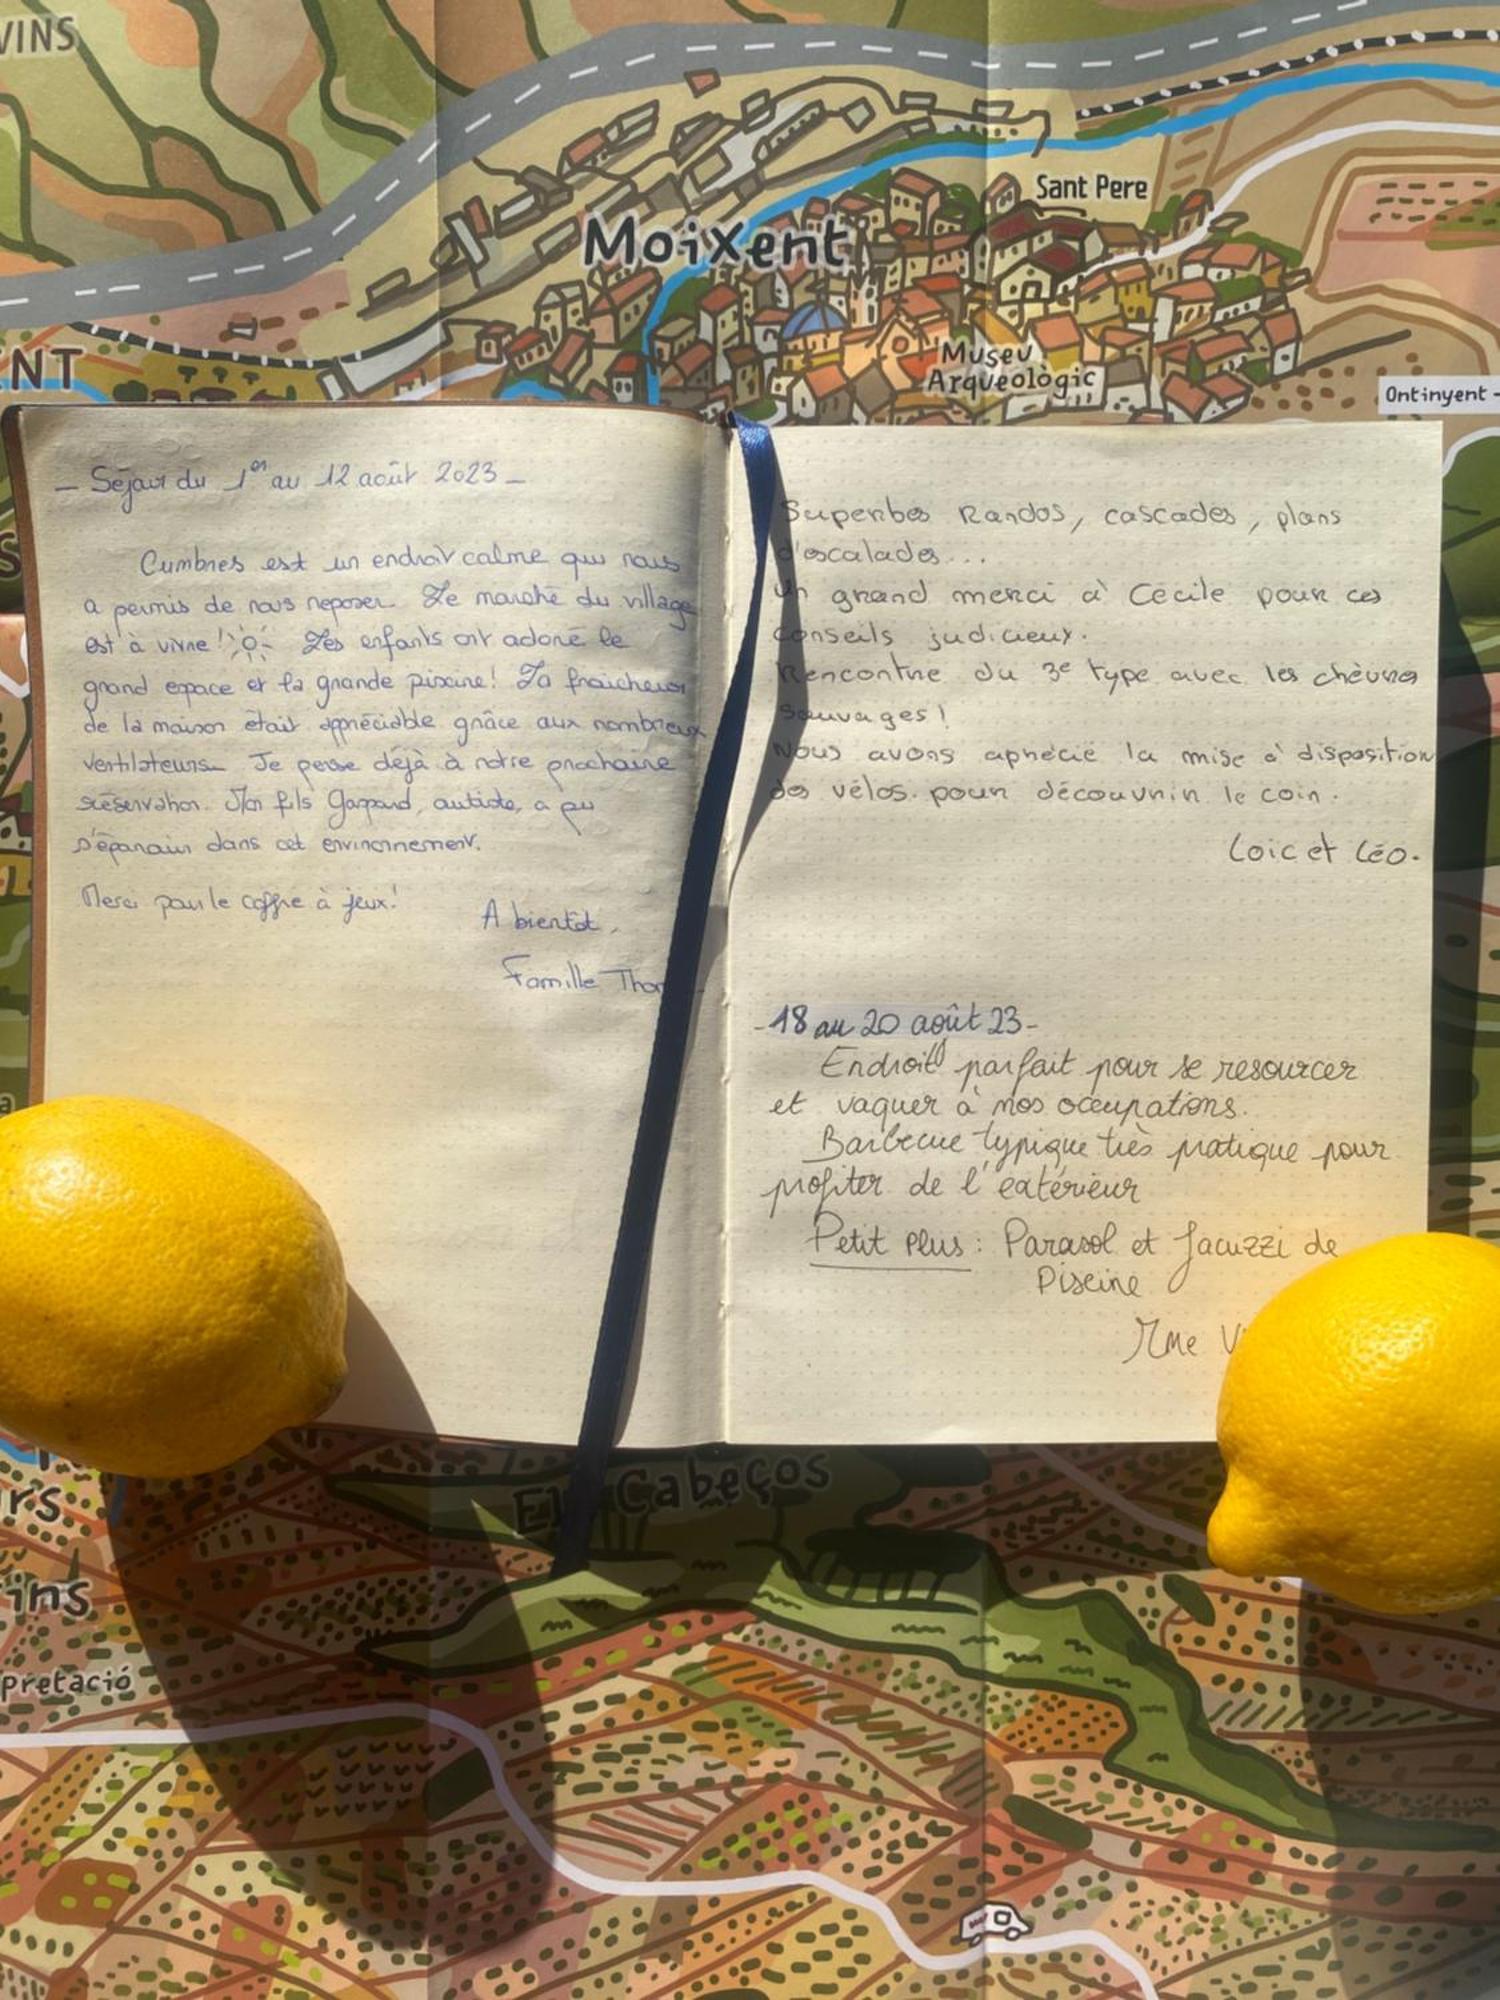 VINS
Sant Pere
Moixent
Museu
Arqueològic
ENT
Ontinyent -
- Séjour du 1er au 12 août 2023 -
Cumbres est un endroit calme qui nous
a permis de nous reposer. Le marché du village
est à vivre ! Les enfants ont adoré le
grand espace et la grande piscine ! La fraîcheur
de la maison était appréciable grâce aux nombreux
ventilateurs. Je pense déjà à notre prochaine
réservation. Mon fils Gaspard, autiste, a pu
s'épanouir dans cet environnement.
Merci pour le coffre à jeux !
A bientôt,
Famille Thom
Superbes Randos, cascades, plans
d'escalades...
Un grand merci à Cécile pour ces
conseils judicieux.
Rencontre du 3e type avec les chèvres
sauvages !
Nous avons aprécié la mise à disposition
des vélos pour découvrir le coin.
Loïc et Léo.
- 18 au 20 août 23 -
Endroit parfait pour se resourcer
et vaquer à nos occupations.
Barbecue typique très pratique pour
profiter de l'extérieur
Petit plus : Parasol et Jacuzzi de
Piscine
Mme V
Cabeços
urs
ins
pretació